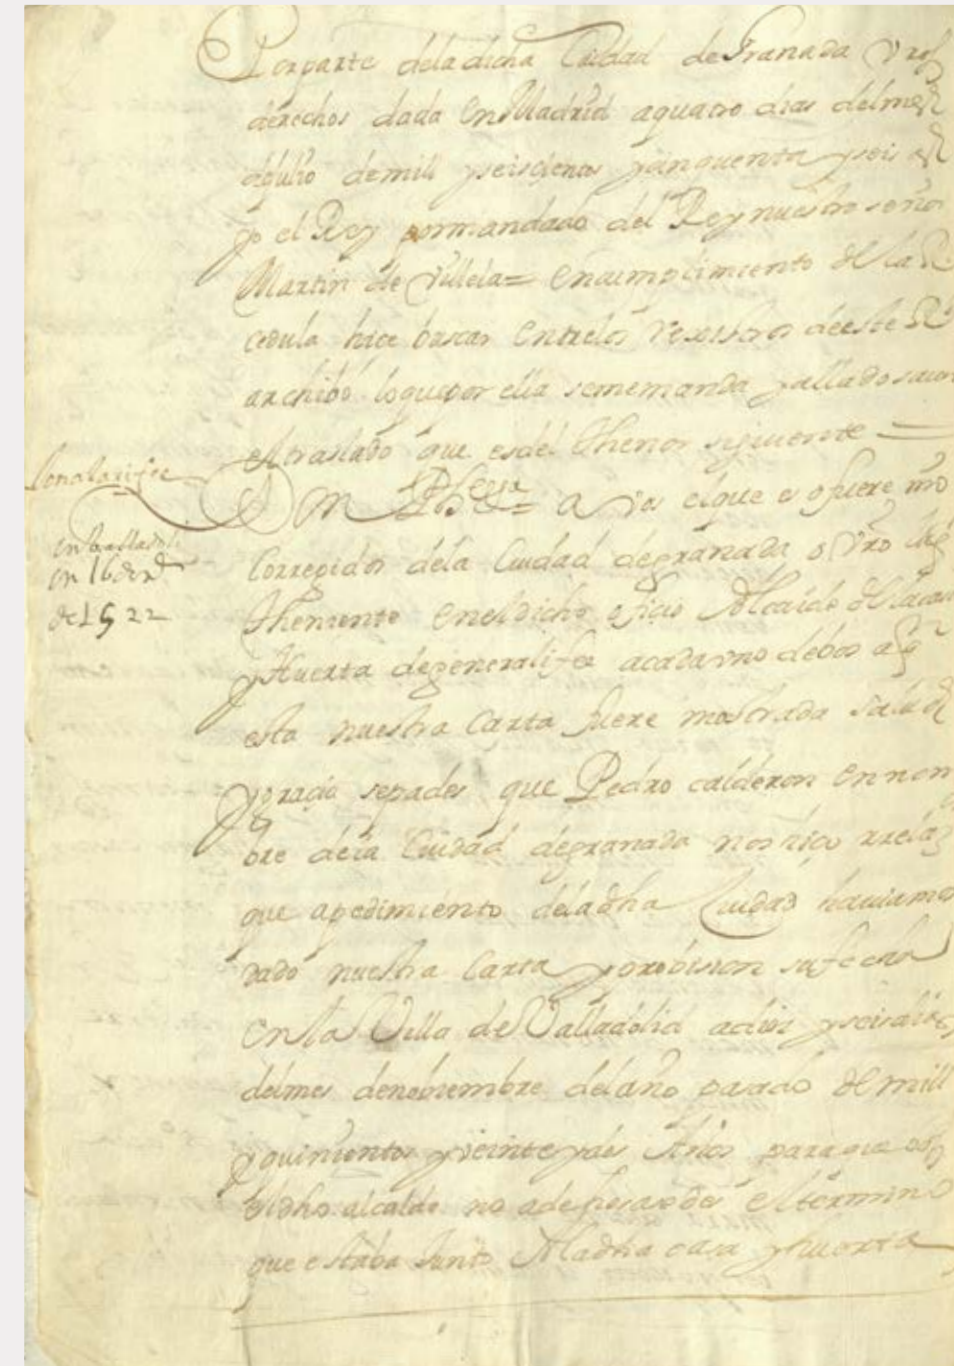 Por parte dela dicha Ciudad de Granada Vros
derechos dada En Madrid aquatro dias delmes de
de mill yseiscientos ycinquenta yseis
yo el Rey pormandado del Rey nuestro señor
Martin de Villela= Encumplimiento de la R.
cedula hice buscar Entrelos rexistros deeste Rl
archibo loquepor ella sememanda yallado
eltraslado que esdel thenor siguiente
Con alarife
D M = A vos elque es ofuere nro
en Valladolid
en 16 de
de 1522
Corregidor dela Ciudad degranada o Vro lug
theniente Eneldicho oficio Alcaide de lacasa
y Huerta degeneralife acadauno debos aq
esta nuestra Carta fuere mostrada salud
ygracia sepades que Pedro calderon Ennom
bre dela Ciudad degranada noshiço rrelaz
que apedimiento deladha Ciudad hauiamos
dado nuestra Carta yprobision sufecha
En la Villa de Valladolid adiez yseis dias
delmes denobiembre delaño pasado de mill
yquinientos yveinte ydos Años paraque
eldho alcalde no adehesase eltermino
que estaba Junto Aladha casa yhuerta